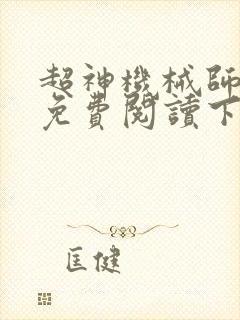 超神機械師
免費閱讀下
匡健